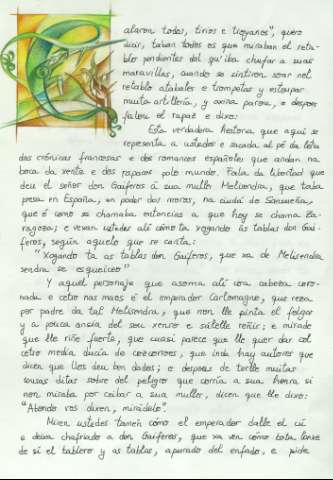 alaron todos, tirios e troyanos", quero
dicir, taban todos os que miraban el reta-
blo pendientes del qu'iba chufar a suas
maravillas, cuando se sintiron sonar nel
retablo atabales e trompetas y estoupar
muita artillería, y axina parou, e despois
falou el rapaz e dixo:
Esta verdadera historia que aquí se
representa a ustedes e sacada al pé da letra
das crónicas francesas e dos romances españoles que andan na
boca da xente e dos rapaces polo mundo. Fala da libertad que
deu el señor don Gaiferos á sua muller Melisendra, que taba
presa en España, en poder dos moros, na ciudá de Sansueña,
que é como se chamaba entoncias a que hoy se chama Za-
ragoza; e vexan ustedes alí cómo ta xogando ás tablas don Gai-
feros, según aquelo que se canta:
"Xogando ta as tablas don Gaiferos, que xa de Melisendra
sendra se esqueiceo"
Y aquel personaje que asoma alí coa cabeza coro-
nada e cetro nas maos é el emperador Carlomagno, que reza
por padre da tal Melisendra, que non lle pinta el folgar
y a pouca ansia del sou xenro e sátelle reñir; e mirade
que lle riñe fuerte, que cuasi parece que lle quer dar col
cetro media ducia de coscorrois, que inda hay autores que
dicen que lles deu ben dados; e despois de terlle muitas
cousas ditas sobre del peligro que corría a sua honra si
non miraba por ceibar a sua muller, dicen que lle dixo:
"Abondo vos dixen, miráidelo".
Miren ustedes tamén cómo el emperador dalle el cú
e deixa chafriado a don Gaiferos, que xa ven cómo bota lonxe
de sí el tablero y as tablas, apurado del enfado, e pide